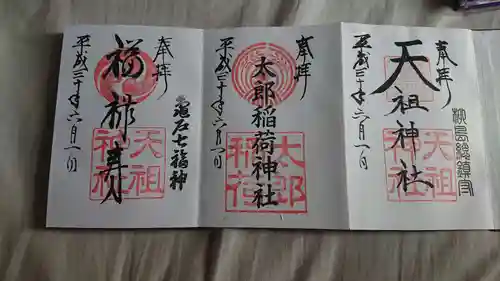 奉拝
柳島総鎮守
天祖神社
天祖神社
平成三十年六月一日
奉拝
太郎稲荷神社
太郎稲荷
平成三十年六月一日
奉拝
亀戸七福神
天祖神社
平成三十年六月一日